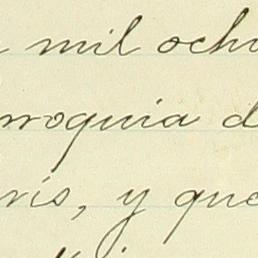 mil ocho
rroquia d
ris, y que